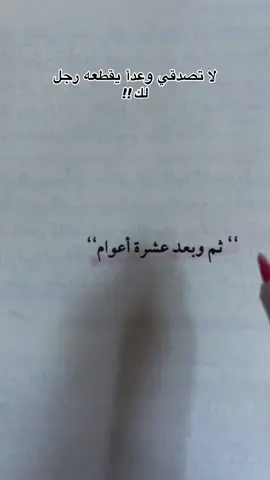 لا تصدقي وعداً يقطعه رجل
لك!!
“ ثم وبعد عشرة أعوام“